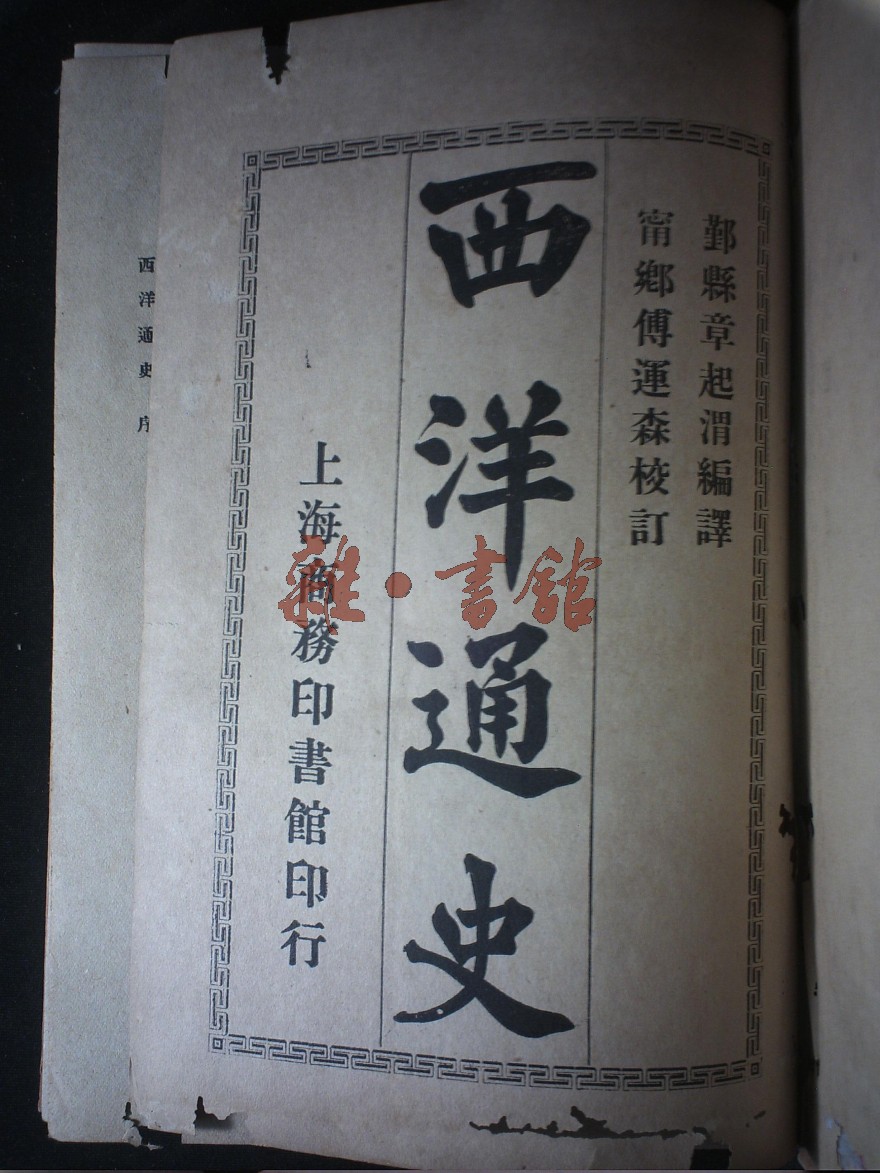 鄞縣章起渭編譯
甯鄉傅運森校訂
西洋通史
上海商務印書館印行
西洋通史 序
雜·書館